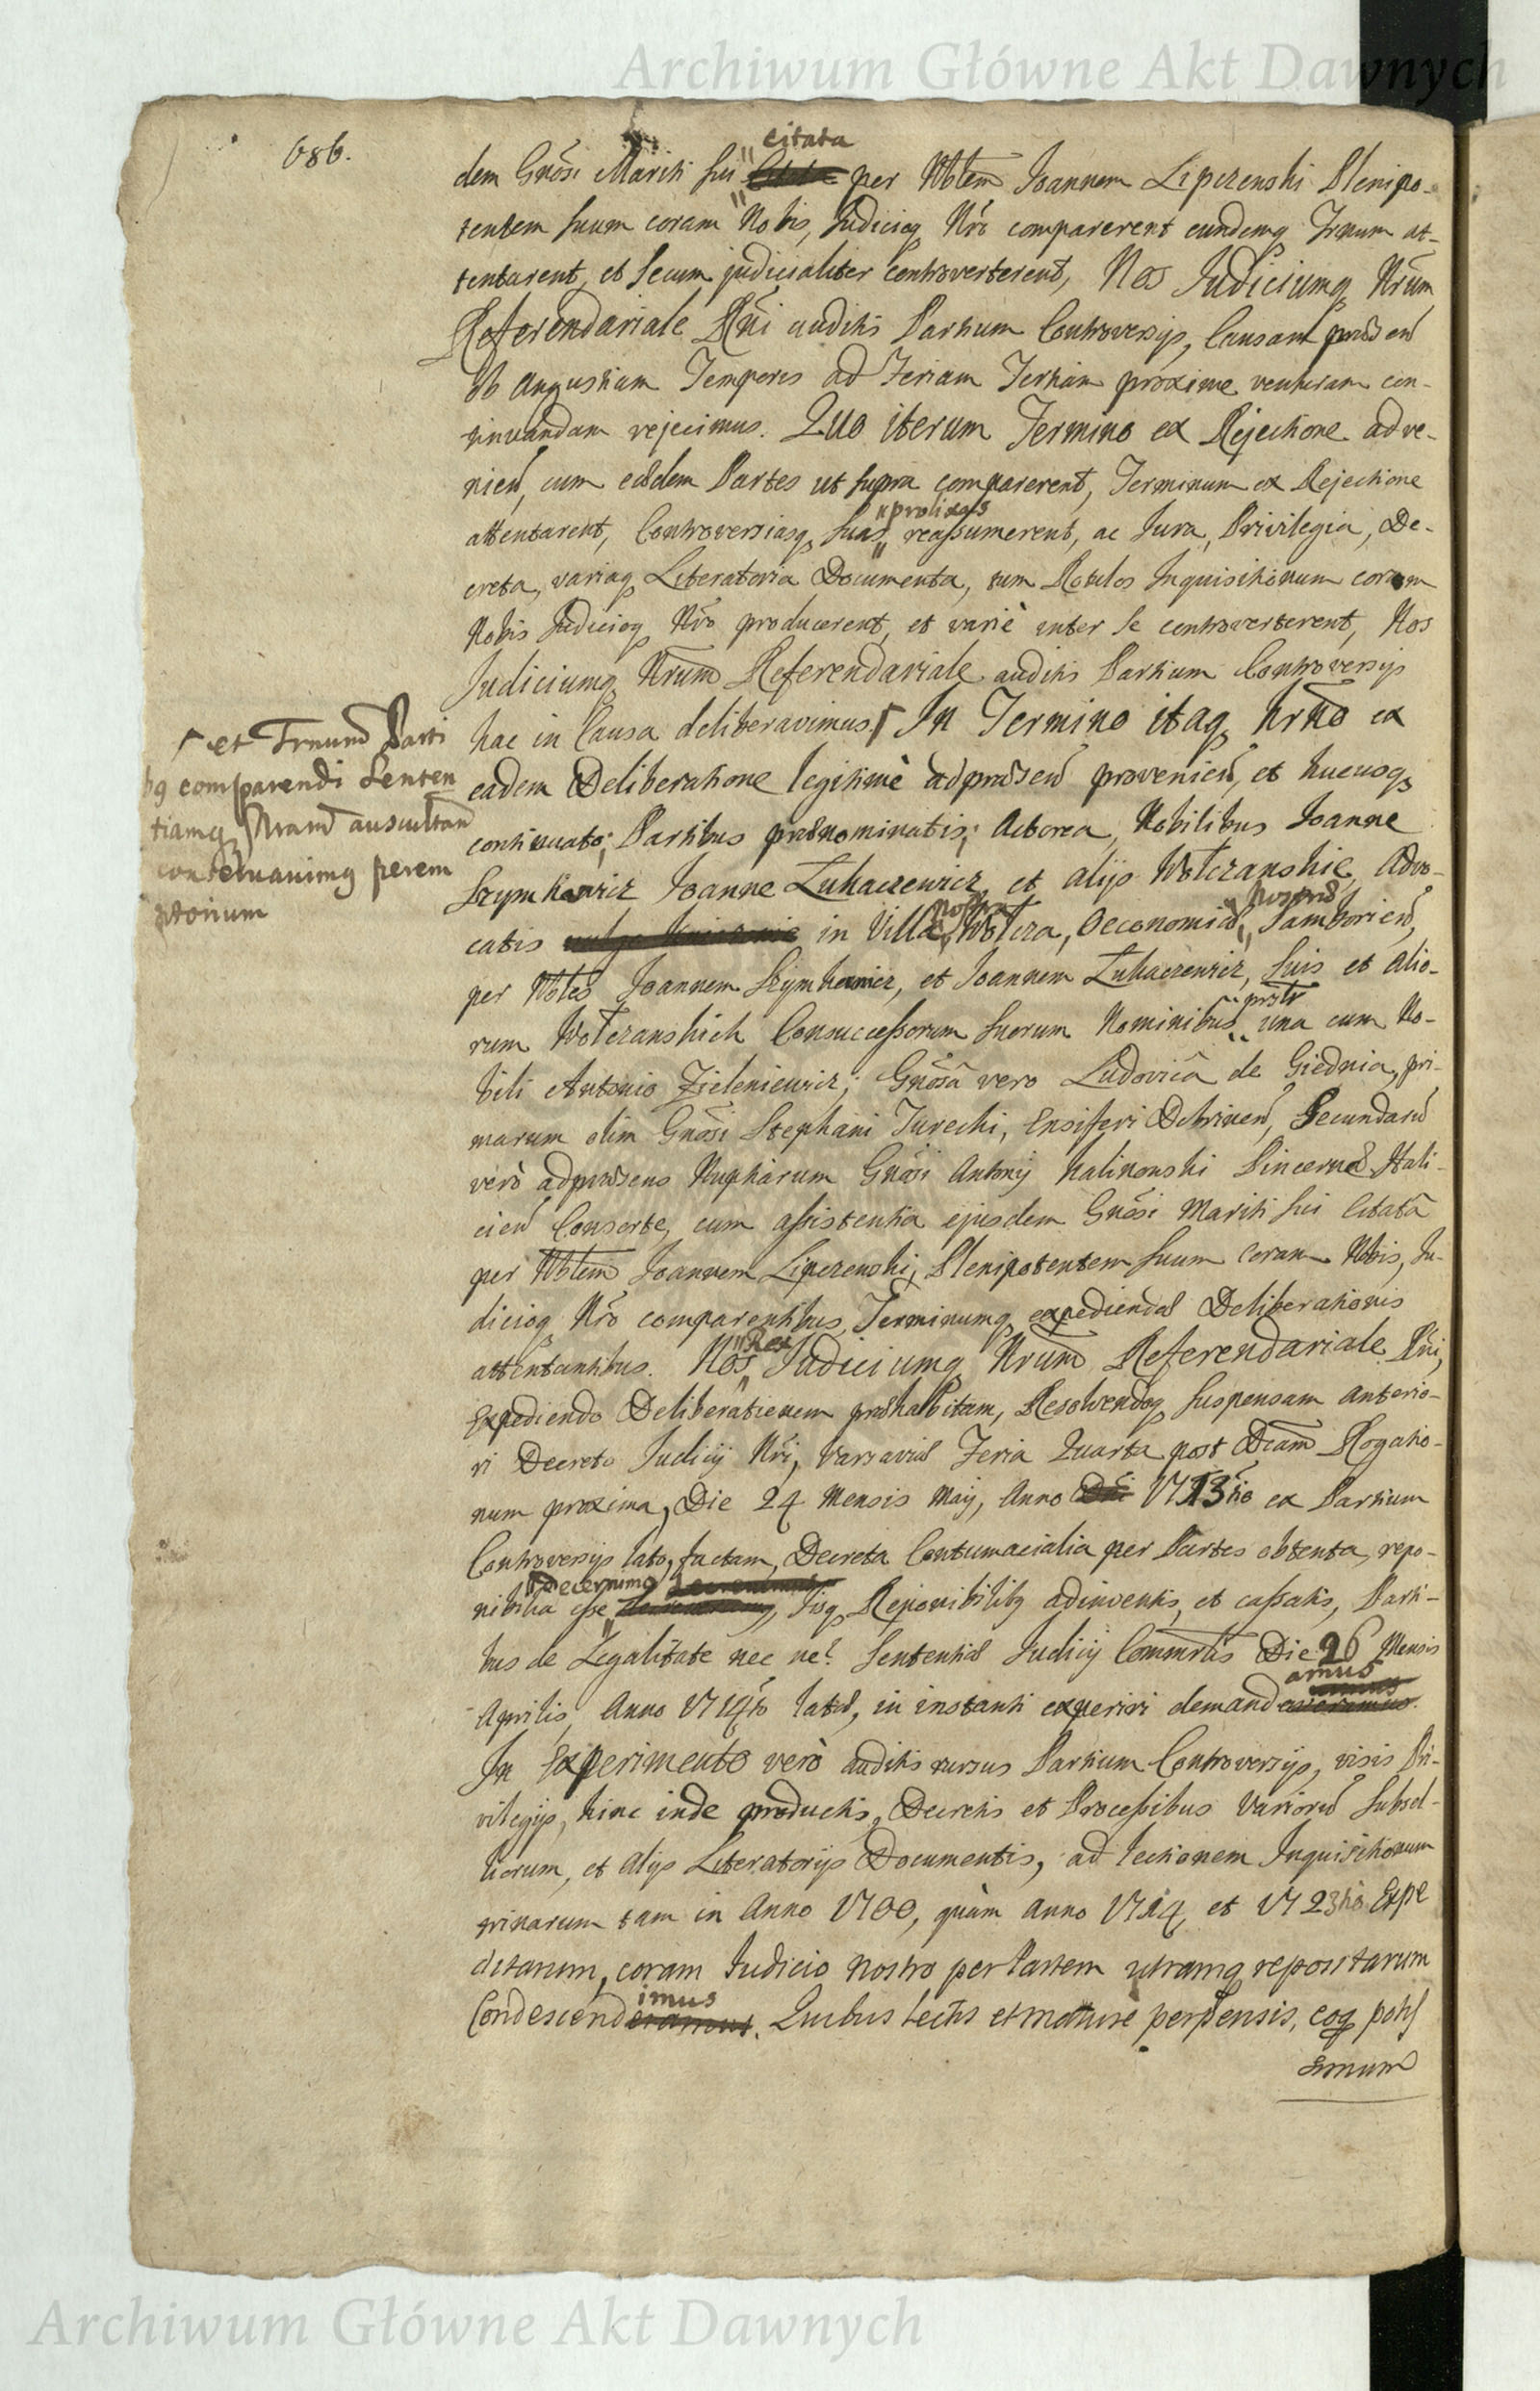 Archiwum Główne Akt Dawnych
686.
citata
dem Gnosi Mariti sui per Nblem Joannem Lipczenski Plenipo-
tentem suum coram Nobis, Judicioq Nro comparerent eundemq Trnum at-
tentarent, et secum judicialiter controverterent, Nos Judiciumq Nrum
Referendariale Rni auditis Partium Controversijs, Causam præsen
ob Angustiam Temporis ad Feriam Tertiam proxime venturam con-
tinuandam rejecimus. Quo iterum Termino ex Rejectione adve-
nien, cum eædem Partes ut supra comparerent, Terminum ex Rejectione
prolixas
attentarent, Controversiasq suas reassumerent, ac Jura, Privilegia, De-
creta, variaq Literatoria Documenta, tum Rotulos Inquisitionum coram
Nobis Judicioq Nro producerent, et variè inter se controverterent, Nos
Judiciumq Nrum Referendariale auditis Partium Controversijs
hac in Causa deliberavimus. In Termino itaq hrno ex
et Trnum Parti
bq comparendi Senten
tiamq Nram auscultan
conservavimq perem
ptorium
eadem Deliberatione legitimè ad præsen provenien, et hucusq
continuato; Partibus prænominatis; Actorea, Nobilibus Joanne
Szymkowicz Joanne Lukaczewicz, et alijs Wolczanskie, Advo-
nostra nostræ
catis in Villa Wolcza, Oeconomiæ Samborien,
per Nbles Joannem Szymkowicz, et Joannem Lukaczewicz, suis et alio-
rum Wolczanskich Consuccessorum suorum Nominibus una cum No-
bili Antonio Zieleniewicz; Gnosâ vero Ludovicâ de Giednia, pri-
marum olim Gnosi Stephani Turecki, Ensiferi Dobrinen, Secundarum
verò ad præsens Nuptiarum Gnosi Antonij Kalinowski Pincernæ Hali-
cien Consorte, cum assistentia ejusdem Gnosi Mariti sui Citatâ
per Nblem Joannem Lipczenski, Plenipotentem suum coram Nobis, Ju-
dicioq Nro comparentibus, Terminumq expediendæ Deliberationis
Rex
attentantibus. Nos Judiciumq Nrum Referendariale Rni,
Expediendo Deliberationem præhabitam, Resolvendoq suspensam anterio-
ri Decreto Judicij Nri, Varsaviæ Feria Quarta post Dcam Rogatio-
num proxima, Die 24 Mensis Maij, Anno 1713tio ex Partium
Controversijs lato, factam, Decreta Contumacialia per Partes obtenta, repo-
decernimq
nibilia esse, Jisq Reponibilibq adinventis, et cassatis, Parti-
bus de Legalitate nec ne? Sententiæ Judicij Commrlis Die 26 Mensis
amus
Aprilis, Anno 1714to latæ, in instanti experiri demand
In Experimento verò auditis rursus Partium Controversijs, visis Pri-
vilegijs, hinc inde productis, Decretis et Processibus Variorum Subsel-
liorum, et alijs Literatorijs Documentis, ad lectionem Inquisitionum
trinarum tam in Anno 1700, quàm Anno 1714, et 1723tio Expe
ditarum, coram Judicio nostro per Partem utramq repositarum
imus
Condescend Quibus lectis et mature perpensis, eoq potis
simum
Archiwum Główne Akt Dawnych